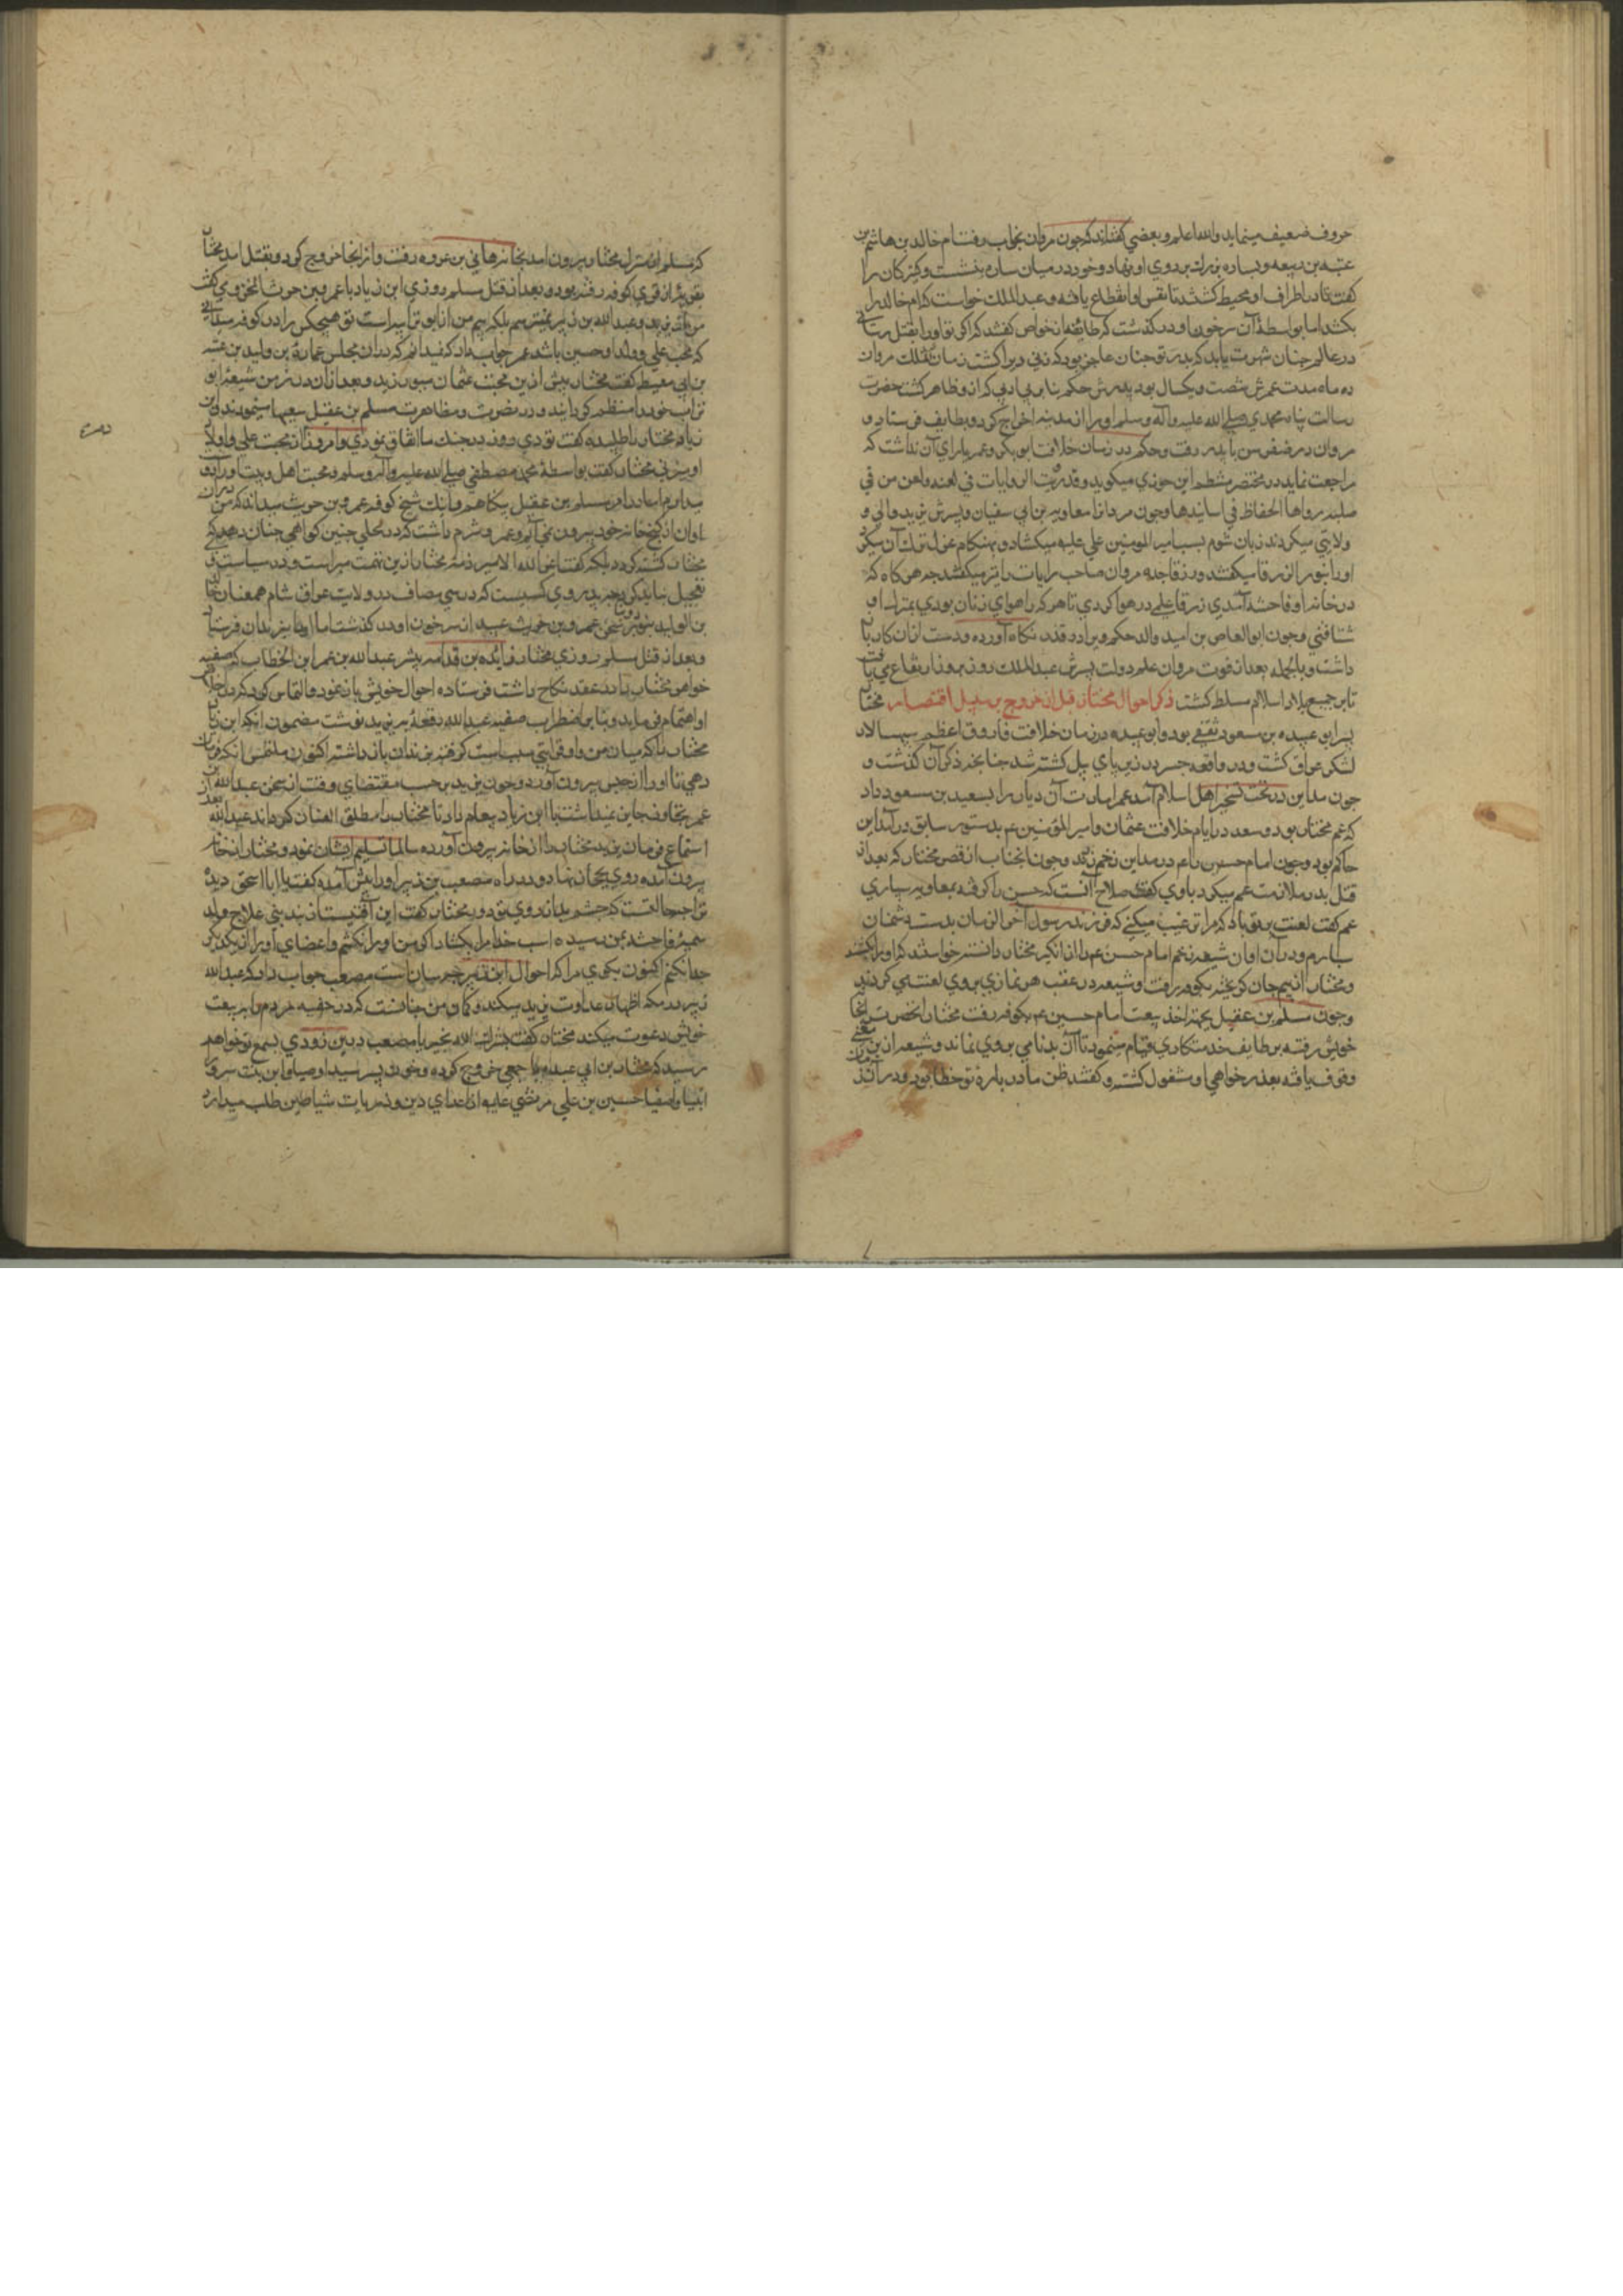 حروف ضعیف مینماید والله اعلم و بعضی گفته‌اند که چون مروان بخواب رفت ام خالد بن هاشم بن
عتبه بن ربیعه وساده بزرك بر روی او نهاد و خود در میان ساده بنشست و کنیزکان را
گفت تا در اطراف او محیط گشتند تا نفس او انقطاع یافته و عبدالملك خواست که ام خالد را
بکشد اما بواسطهٔ آن سر خون او در گذشت که طایفهٔ از خواص گفتند که اگر تو او را بقتل رسانی
در عالم چنان شهرت یابد که پدر تو چنان عاجز بود که زنی ویرا کشت زمان تملك مروان
ده ماه مدت عمرش شصت و یکسال بود پدرش حکم بنا بر بی ادبی که ازو ظاهر گشت حضرت
رسالت پناه محمدی صلی الله علیه و آله وسلم او را از مدینه اخراج کرد و بطایف فرستاد و
مروان در صغر سن با پدر رفت و حکم در زمان خلافت ابوبکر و عمر یارای آن نداشت که
مراجعت نماید در مختصر منتظم ابن جوزی میگوید و قد رویت الروایات فی لعنه و لعن من فی
صلبه رواها الحفاظ فی اسانیدها و چون مردان معاویه بن ابی سفیان و پسرش یزید والی و
ولایتی میکردند زبان شوم بسب امیر المومنین علی علیه میکشاد و بهنکام عزل ترك آن میکرد
او را بنو الزرقا میگفتند و زرقا جده مروان صاحب رایات را نیز میگفتند چه هرگاه که
در خانه او فاحشه آمدی زرقا علمی در هوا کردی تا هر که را هوای زنان بودی بمنزل او
شتافتی و چون ابو العاص بن امیه والد حکم ویرا در قید نکاه آورده و دست ازان کار باز
داشت و بالجمله بعد از فوت مروان علم دولت پسرش عبدالملك روز بروز ارتفاع می یافت
تا بر جمیع بلاد اسلام مسلط گشت ذکر احوال مختار قبل از خروج بر سبیل اقتصار مختار
پسر ابو عبیده بن مسعود ثقفی بود و ابو عبیده در زمان خلافت فاروق اعظم سپهسالار
لشکر عراق گشت و در واقعه جسر در زیر پای پیل کشته شد چنانچه ذکر آن گذشت و
چون مداین در تحت تسخیر اهل اسلام آمد عمر امارت آن دیار را بسعید بن مسعود داد
که عم مختار بود و سعد در ایام خلافت عثمان و امیر المؤمنین عم بدستور سابق در مداین
حاکم بود و چون امام حسن را عم در مداین زخم زدند و چون آنجناب از قص مختار که بعد از
قتل پدر ملازمت عم میکرد باوی گفت صلاح آنست که حسن را گرفته بمعاویه سپاری
عم گفت لعنت بر تو باد که مرا ترغیب میکنی که فرزند رسول آخر الزمان بدست دشمنان
سپارم و در آن اوان شیعه زخم امام حسن عم را از انگیز مختار دانسته خواستند که او را بکشند
و مختار از بیم جان گریخته بکوفه رفت و شیعه در عقب هر نمازی بروی لعنت می کردند
و چون مسلم بن عقیل بجهت اخذ بیعت امام حسین عم بکوفه رفت مختار انحضرت را بخانه
خویش رفته بوظایف خدمتکاری قیام مینمود تا آن بدنامی بروی نماند و شیعه ازین معنی
وقوف یافته بعذر خواهی او مشغول گشته و گفتند ظن ما در بارهٔ تو خطا بود و در آن زمان
که مسلم از منزل مختار بیرون آمد بخانه هانی بن عروه رفت و از آنجا خروج کرد و بقتل آمد مختار
بعد از قتل مسلم روزی ابن زیاد با عمرو بن حریث المخزومی گفت
من از یزید و عبدالله بن زبیر نمیترسم بلکه بیم من از ابو تراب است تو هیچکس را در کوفه میدانی
که محب علی و ولد او حسین باشد عم جواب داد که نمیدانم که در آن مجلس عمارهٔ بن ولید بن عقبه
بن ابی معیط گفت مختار پیش ازین محبت عثمان میورزید و بعد ازان در زمرهٔ شیعهٔ ابو
تراب خود را منتظم گردانید و در نصرت و مظاهرت مسلم بن عقیل سعیها مینمودند ابن
زیاد مختار را طلبیده گفت تو دی روز در جنك ما اتفاق نمودی و امروز از محبت علی و اولاد
او میزنی مختار گفت بواسطهٔ محمد مصطفی صلی الله علیه و آله وسلم محبت اهل بیت او را دوست
میدارم اما امداد مسلم بن عقیل بیگاهم و اینك شیخ کوفه عمرو بن حریث میداند که من دران
اوان از کنج خانه خود بیرون نمی آمدم و عمرو شرم داشت که در محلی چنین گواهی چنان ندهد که
مختار کشته گردد بلکه گفت اعز الله الامیر ذمهٔ مختار ازین تهمت مبراست و در سیاست او
تعجیل نباید کرد
بن الولید سخن عمرو بن حریث عبید از سر خون او در گذشت اما او را بزندان فرستاد
و بعد از قتل مسلم روزی مختار زایده بن قدامه پیش عبدالله بن عمر ابن الخطاب که صفیه
خواهر مختار را در عقد نکاح داشت فرستاده احوال خویش باز نمود و التماس کرد که در خلاص
او اهتمام فرماید و بنا بر اضطراب صفیه عبدالله رقعهٔ به یزید نوشت مضمون آنکه ابن زیاد
مختار را که میان من و او قرابتی سببی است گرفته بزندان بازداشته اکنون ملتمس انکه فرمان
دهی تا او را از حبس بیرون آورد و چون یزید بر حسب مقتضای وقت از سخن عبدالله بن
عمر تجاوز جایز نمیداشت با ابن زیاد پیغام داد تا مختار را مطلق العنان گرداند عبیدالله بعد از
استماع فرمان یزید مختار را از خانه بیرون آورده سالما تسلیم ایشان نمود و مختار از خانه
بیرون آمده روی بحجاز نهاد و در راه مصعب بن زبیر او را پیش آمده گفت یا ابا اسحق دیده
ترا چه حالتست که چشم بد از روی تو دور مختار گفت این آفتیست از
سمیهٔ فاحشه بمن رسیده است خدا مرا بکشد اگر من او را نکشم و اعضای او را از یکدیگر
جدا نکنم اکنون بگوی مرا که احوال ابن زبیر چه سان است مصعب جواب داد که عبدالله
زبیر در مکه اظهار عداوت یزید میکند و گمان من چنانست که در خفیه مردم را به بیعت
خویش دعوت میکند مختار گفت بشرك الله بخیر یا مصعب درین زودی بسمع تو خواهد
رسید که مختار بن ابی عبیده با جمعی خروج کرده و خون پسر سید اوصیا و ابن بنت سرور
انبیا و اصفیا حسین بن علی مرتضی علیه از اعدای دین و ذریات شیاطین طلب میدارد